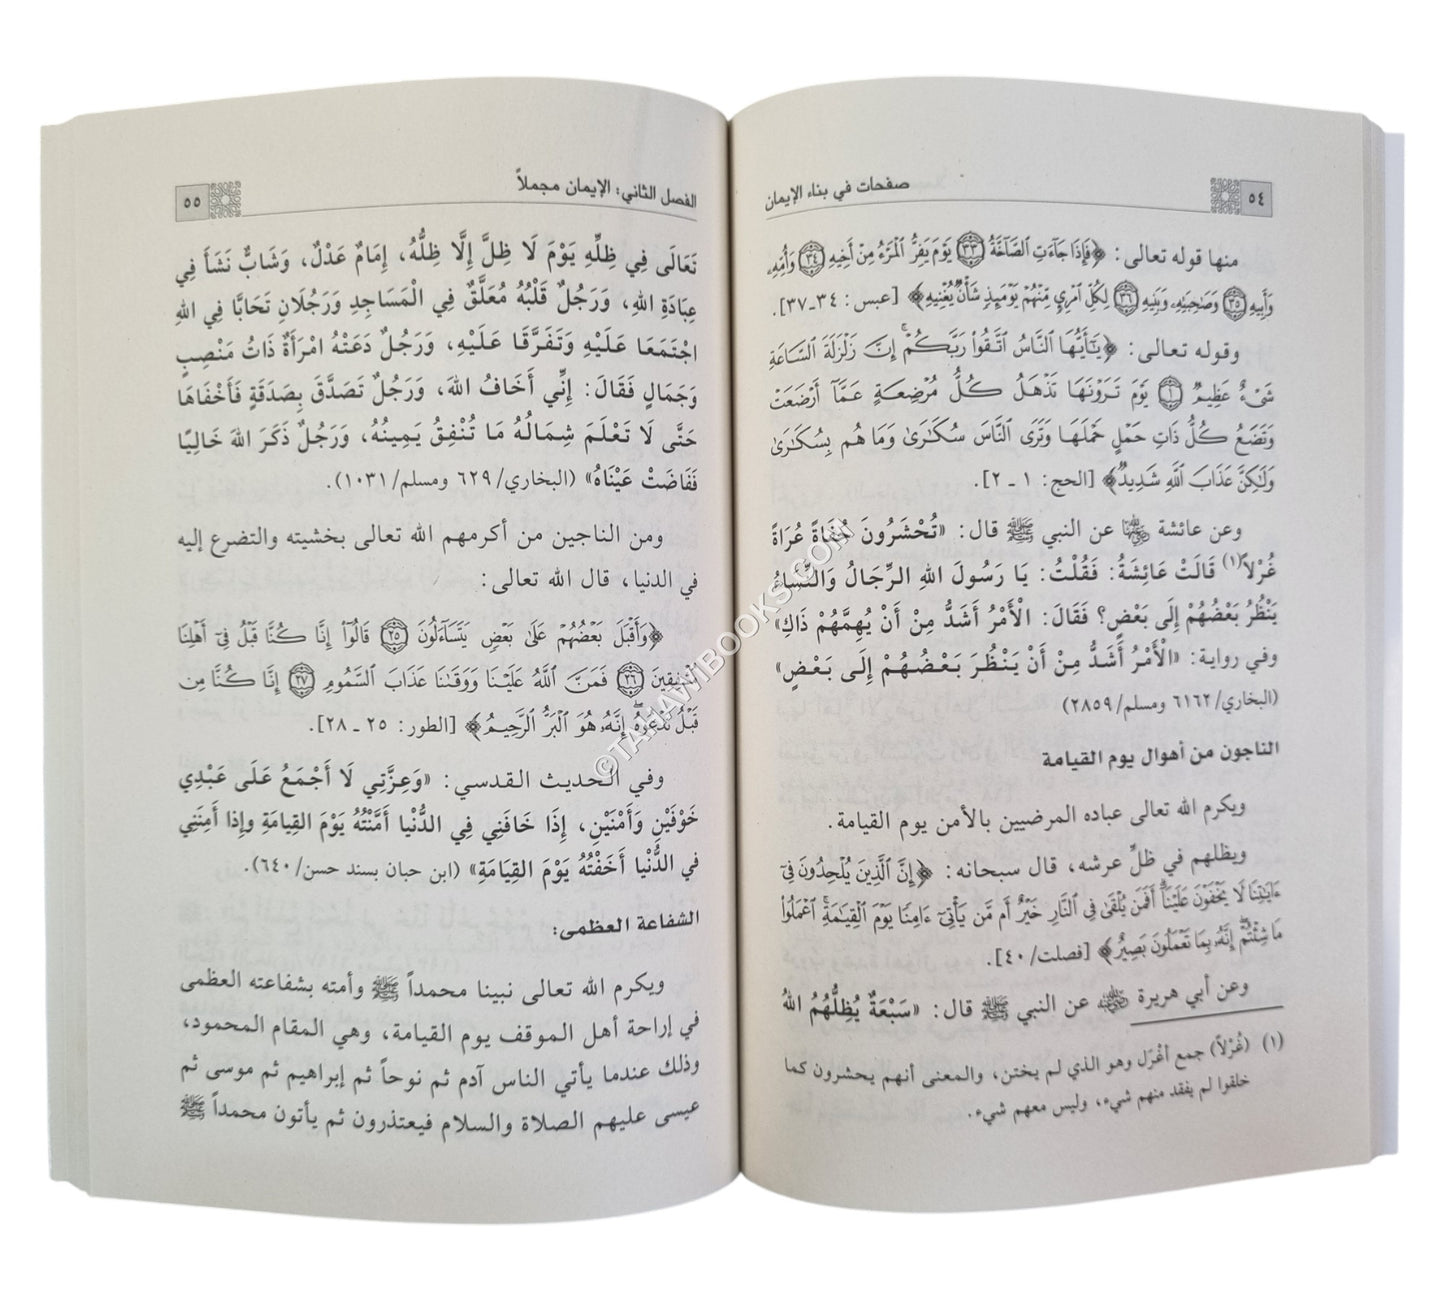 ٥٤
صفحات في بناء الإيمان
منها قوله تعالى: ﴿فَإِذَا جَآءَتِ ٱلصَّآخَّةُ ٣٣ يَوْمَ يَفِرُّ ٱلْمَرْءُ مِنْ أَخِيهِ ٣٤ وَأُمِّهِۦ
وَأَبِيهِ ٣٥ وَصَٰحِبَتِهِۦ وَبَنِيهِ ٣٦ لِكُلِّ ٱمْرِئٍ مِّنْهُمْ يَوْمَئِذٍ شَأْنٌ يُغْنِيهِ﴾ [عبس: ٣٤ـ٣٧].
وقوله تعالى: ﴿يَٰٓأَيُّهَا ٱلنَّاسُ ٱتَّقُوا۟ رَبَّكُمْ ۚ إِنَّ زَلْزَلَةَ ٱلسَّاعَةِ
شَىْءٌ عَظِيمٌ ١ يَوْمَ تَرَوْنَهَا تَذْهَلُ كُلُّ مُرْضِعَةٍ عَمَّآ أَرْضَعَتْ
وَتَضَعُ كُلُّ ذَاتِ حَمْلٍ حَمْلَهَا وَتَرَى ٱلنَّاسَ سُكَٰرَىٰ وَمَا هُم بِسُكَٰرَىٰ
وَلَٰكِنَّ عَذَابَ ٱللَّهِ شَدِيدٌ﴾ [الحج: ١ ـ ٢].
وعن عائشة رضي الله عنها عن النبي ﷺ قال: «تُحْشَرُونَ حُفَاةً عُرَاةً
غُرْلاً(١) قَالَتْ عَائِشَةُ: فَقُلْتُ: يَا رَسُولَ اللهِ الرِّجَالُ وَالنِّسَاءُ
يَنْظُرُ بَعْضُهُمْ إِلَى بَعْضٍ؟ فَقَالَ: الْأَمْرُ أَشَدُّ مِنْ أَنْ يُهِمَّهُمْ ذَاكِ»
وفي رواية: «الْأَمْرُ أَشَدُّ مِنْ أَنْ يَنْظُرَ بَعْضُهُمْ إِلَى بَعْضٍ»
(البخاري/ ٦١٦٢ ومسلم/ ٢٨٥٩)
الناجون من أهوال يوم القيامة
ويكرم الله تعالى عباده المرضيين بالأمن يوم القيامة.
ويظلهم في ظلِّ عرشه، قال سبحانه: ﴿إِنَّ ٱلَّذِينَ يُلْحِدُونَ فِىٓ
ءَايَٰتِنَا لَا يَخْفَوْنَ عَلَيْنَآ ۗ أَفَمَن يُلْقَىٰ فِى ٱلنَّارِ خَيْرٌ أَم مَّن يَأْتِىٓ ءَامِنًا يَوْمَ ٱلْقِيَٰمَةِ ۚ ٱعْمَلُوا۟
مَا شِئْتُمْ ۖ إِنَّهُۥ بِمَا تَعْمَلُونَ بَصِيرٌ﴾ [فصلت/ ٤٠].
وعن أبي هريرة رضي الله عنه عن النبي ﷺ قال: «سَبْعَةٌ يُظِلُّهُمُ اللهُ
(١) (غُرْلاً) جمع أغْرَل وهو الذي لم يختن، والمعنى أنهم يحشرون كما
خلقوا لم يفقد منهم شيء، وليس معهم شيء.
الفصل الثاني: الإيمان مجملاً
٥٥
تَعَالَى فِي ظِلِّهِ يَوْمَ لَا ظِلَّ إِلَّا ظِلُّهُ، إِمَامٌ عَدْلٌ، وَشَابٌّ نَشَأَ فِي
عِبَادَةِ اللهِ، وَرَجُلٌ قَلْبُهُ مُعَلَّقٌ فِي الْمَسَاجِدِ وَرَجُلَانِ تَحَابَّا فِي اللهِ
اجْتَمَعَا عَلَيْهِ وَتَفَرَّقَا عَلَيْهِ، وَرَجُلٌ دَعَتْهُ امْرَأَةٌ ذَاتُ مَنْصِبٍ
وَجَمَالٍ فَقَالَ: إِنِّي أَخَافُ اللهَ، وَرَجُلٌ تَصَدَّقَ بِصَدَقَةٍ فَأَخْفَاهَا
حَتَّى لَا تَعْلَمَ شِمَالُهُ مَا تُنْفِقُ يَمِينُهُ، وَرَجُلٌ ذَكَرَ اللهَ خَالِيًا
فَفَاضَتْ عَيْنَاهُ» (البخاري/ ٦٢٩ ومسلم/ ١٠٣١).
ومن الناجين من أكرمهم الله تعالى بخشيته والتضرع إليه
في الدنيا، قال الله تعالى:
﴿وَأَقْبَلَ بَعْضُهُمْ عَلَىٰ بَعْضٍ يَتَسَآءَلُونَ ٢٥ قَالُوٓا۟ إِنَّا كُنَّا قَبْلُ فِىٓ أَهْلِنَا
مُشْفِقِينَ ٢٦ فَمَنَّ ٱللَّهُ عَلَيْنَا وَوَقَىٰنَا عَذَابَ ٱلسَّمُومِ ٢٧ إِنَّا كُنَّا مِن
قَبْلُ نَدْعُوهُ ۖ إِنَّهُۥ هُوَ ٱلْبَرُّ ٱلرَّحِيمُ﴾ [الطور: ٢٥ ـ ٢٨].
وفي الحديث القدسي: «وَعِزَّتِي لَا أَجْمَعُ عَلَى عَبْدِي
خَوْفَيْنِ وَأَمْنَيْنِ، إِذَا خَافَنِي فِي الدُّنْيا أَمَّنْتُهُ يَوْمَ القِيامَةِ وإِذا أَمِنَنِي
في الدُّنْيا أَخَفْتُهُ يَوْمَ القِيامَةِ» (ابن حبان بسند حسن/ ٦٤٠).
الشفاعة العظمى:
ويكرم الله تعالى نبينا محمداً ﷺ وأمته بشفاعته العظمى
في إراحة أهل الموقف يوم القيامة، وهي المقام المحمود،
وذلك عندما يأتي الناس آدم ثم نوحاً ثم إبراهيم ثم موسى ثم
عيسى عليهم الصلاة والسلام فيعتذرون ثم يأتون محمداً ﷺ
©TAHAWIBOOKS.COM